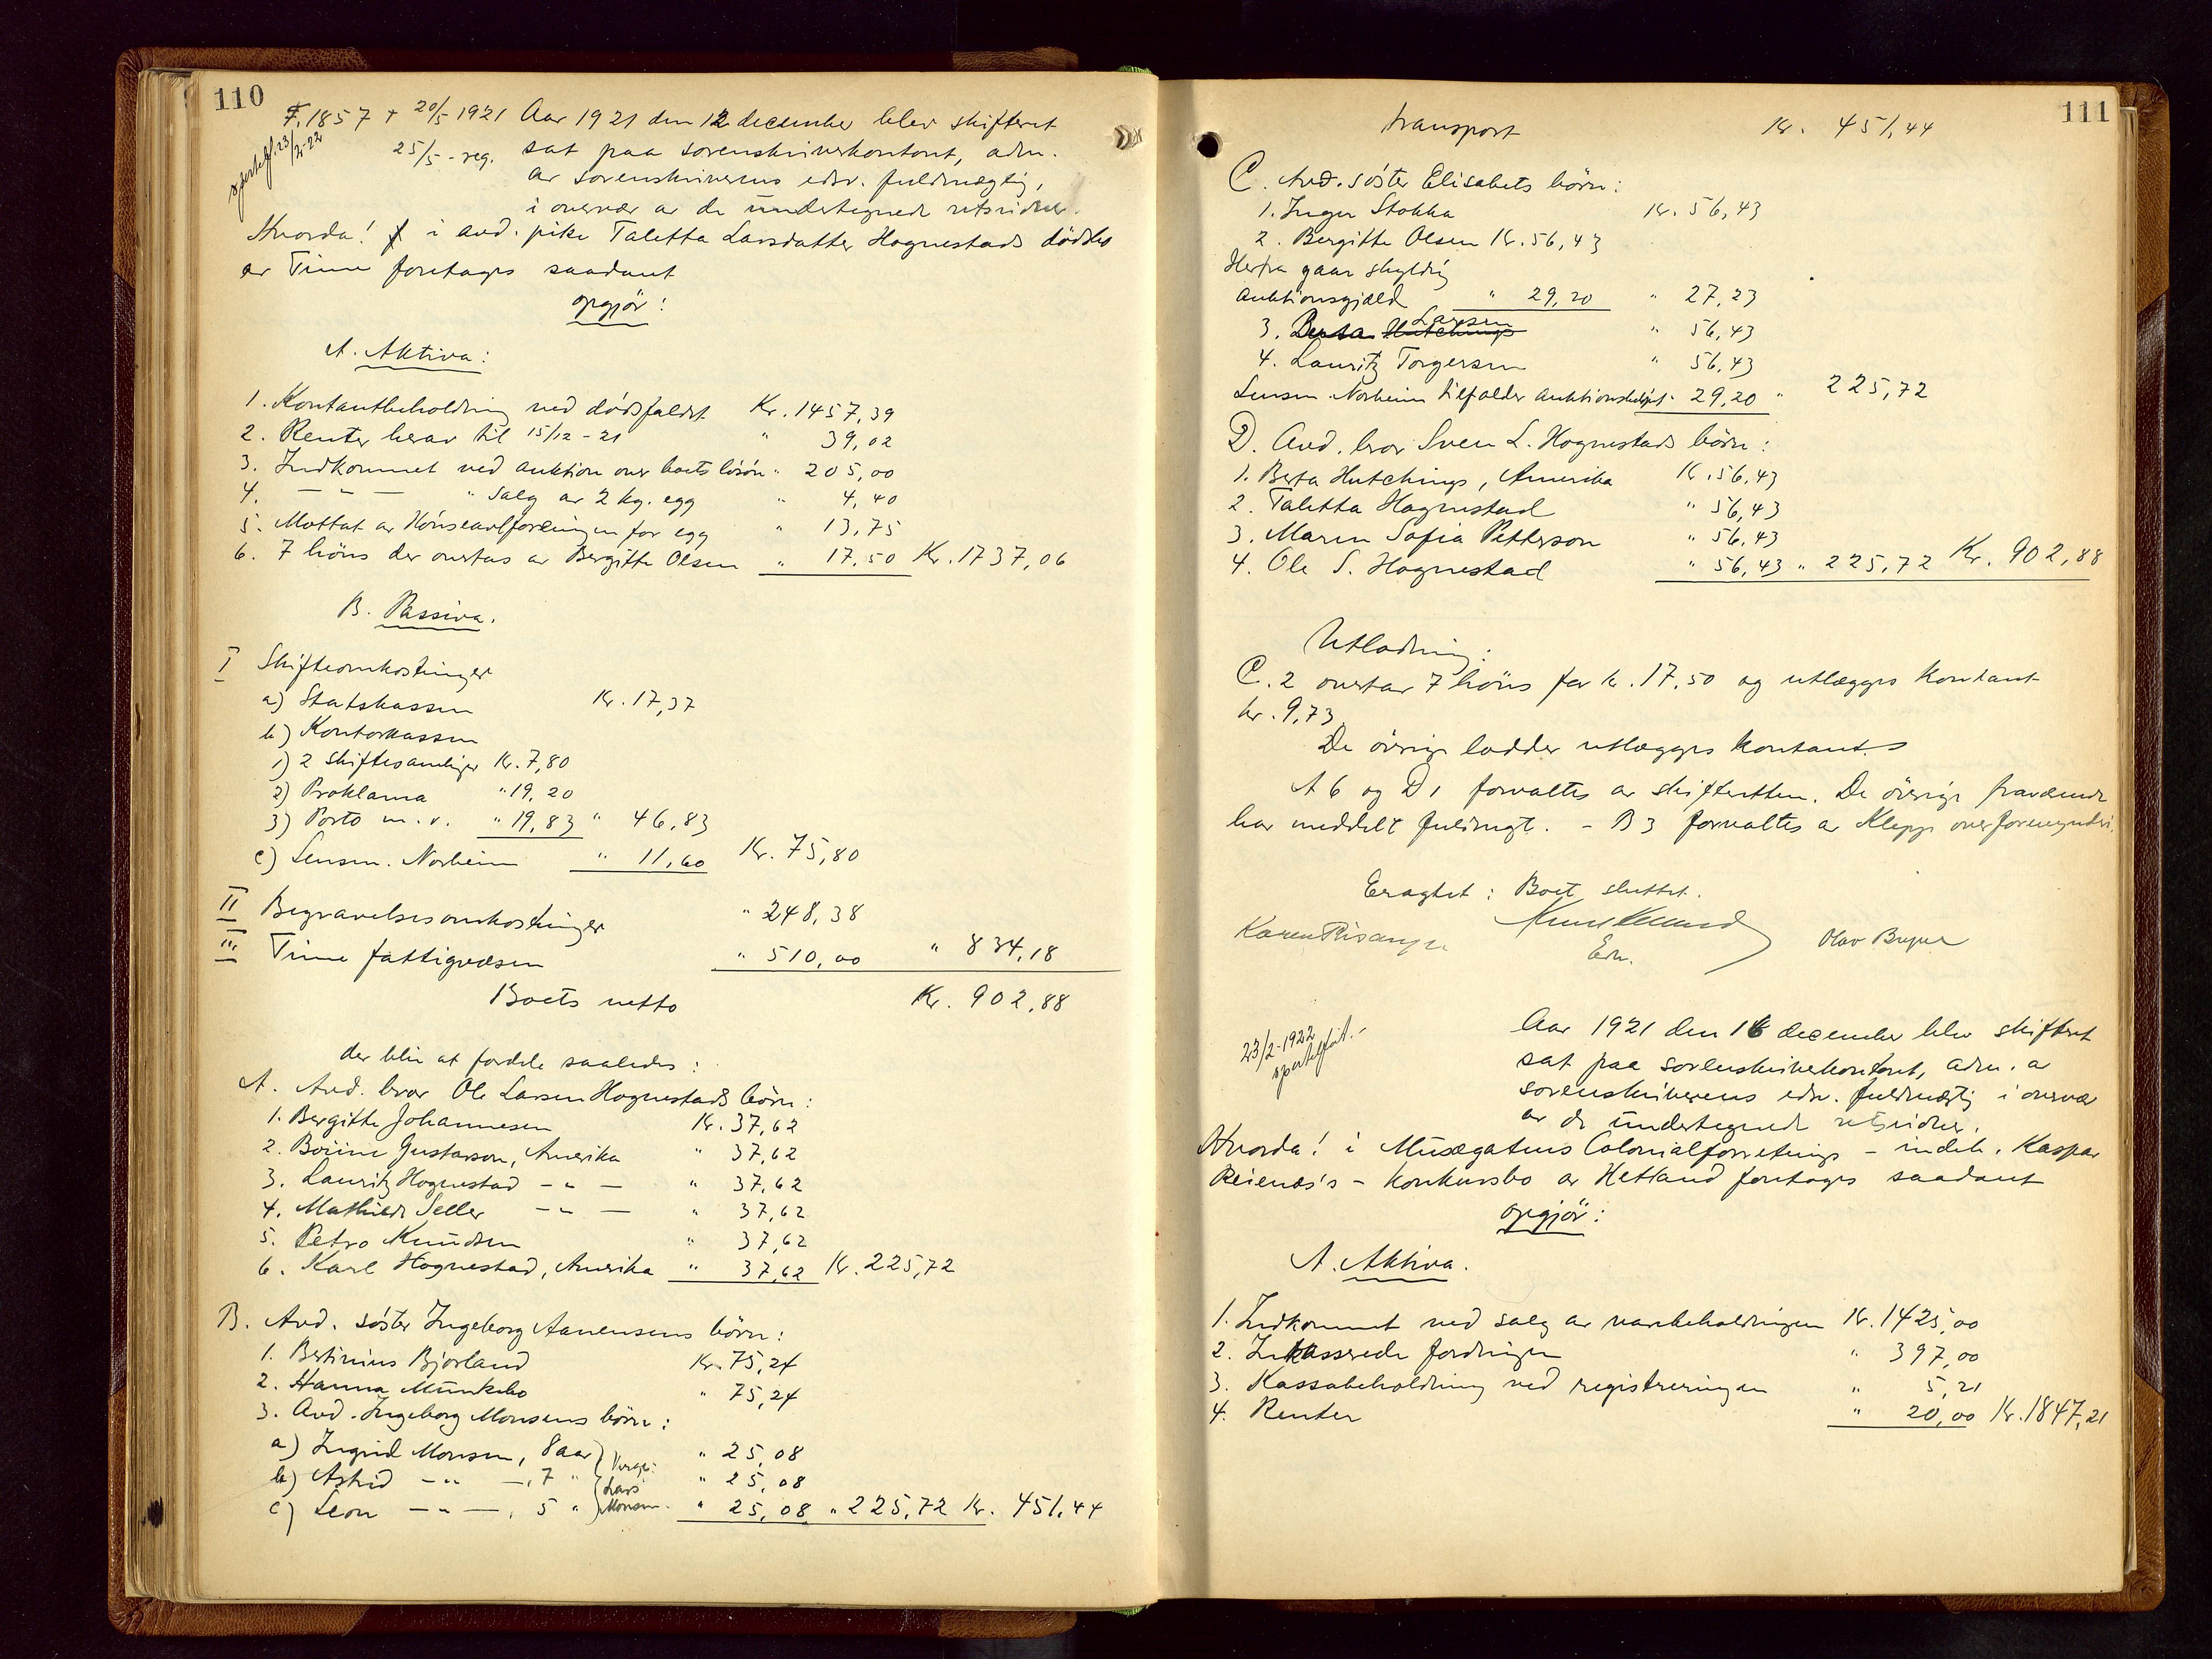 110
F. 1857 + 20/5 1921 Aar 1921 den 12 december blev skifteret
sportelf. 23/2-22
25/5 - reg. sat paa sorenskriverkontoret, adm.
av sorenskriverens edsv. fuldmægtig,
i overvær av de undertegnede retsvidner.
Hvorda! i avd. pike Taletta Larsdatter Hognestads dödsbo
av Time foretages saadant
opgjör:
A. Aktiva:
1. Kontantbeholdning ved dödsfaldet Kr. 1457,39
2. Renter herav til 15/12 - 21 " 39,02
3. Indkommet ved auktion over boets lösöre " 205,00
4. — " — " Salg av 2 kg. egg " 4,40
5. Mottat av Hönseavlforeningen for egg " 13,75
6. 7 höns der overtas av Bergitte Olsen " 17,50 Kr. 1737,06
B. Passiva.
I Skifteomkostninger
a) Statskassen Kr. 17,37
b) Kontorkassen
1) 2 skiftesamlinger Kr. 7,80
2) Proklama " 19,20
3) Porto m.v. " 19,83 " 46,83
c) Lensm. Norheim " 11,60 Kr. 75,80
II Begravelsesomkostninger " 248,38
III Time fattigvæsen " 510,00 " 834,18
Boets netto Kr. 902,88
der blir at fordele saaledes:
A. Avd. bror Ole Larsen Hognestads börn:
1. Bergitte Johannesen Kr. 37,62
2. Gustavson, Amerika " 37,62
3. Lauritz Hognestad — " — " 37,62
4. Mathilde Seller — " — " 37,62
5. Petro Knudsen " 37,62
6. Karl Hognestad, Amerika " 37,62 Kr. 225,72
B. Avd. söster Ingeborg Aanensens börn:
1. Bertinius Bjorland Kr. 75,24
2. Hanna Munkebo " 75,24
3. Avd. Ingeborg Monsens börn:
a) Ingrid Monsen, 8 aar " 25,08
b) Astrid — " —, 7 " " 25,08
c) Leon — " —, 5 " " 25,08 " 225,72 Kr. 451,44
Verge:
Lars
Monsen.
111
transport Kr. 451,44
C. Avd. söster Elisabets börn:
1. Inger Stokka Kr. 56,43
2. Bergitte Olsen Kr. 56,43
Herfra gaar skyldig
auktionsgjæld " 29,20 " 27,23
3. Berta Hutchings Larsen " 56,43
4. Lauritz Torgersen " 56,43
Lensm. Norheim tilfalder auktionsbelöpet " 29,20 " 225,72
D. Avd. bror Sven L. Hognestads börn:
1. Berta Hutchings, Amerika Kr. 56,43
2. Taletta Hognestad " 56,43
3. Maren Sofia Petterson " 56,43
4. Ole S. Hognestad " 56,43 " 225,72 Kr. 902,88
Utlodning:
C. 2 overtar 7 höns for kr. 17,50 og utlægges kontant
kr. 9,73
De övrige lodder utlægges kontant.
A 6 og D 1 forvaltes av skifteretten. De övrige fraværende
har meddelt fuldmagt. - B 3 forvaltes av Klepp overformynderi.
Eragtet: Boet sluttet.
Edv.
23/2-1922
sportelført.
Aar 1921 den 16 december blev skifteret
sat paa sorenskriverkontoret, adm. av
sorenskriverens edsv. fuldmægtig i overvær
av de undertegnede retsvidner.
Hvorda! i Musægatens Colonialforretnings - indeh. Kaspar
Reienæs's - konkursbo av Hetland foretages saadant
opgjör:
A. Aktiva.
1. Indkommet ved salg av varebeholdningen Kr. 1425,00
2. Inkasserede fordringer " 397,00
3. Kassabeholdning ved registreringen " 5,21
4. Renter " 20,00 Kr. 1847,21